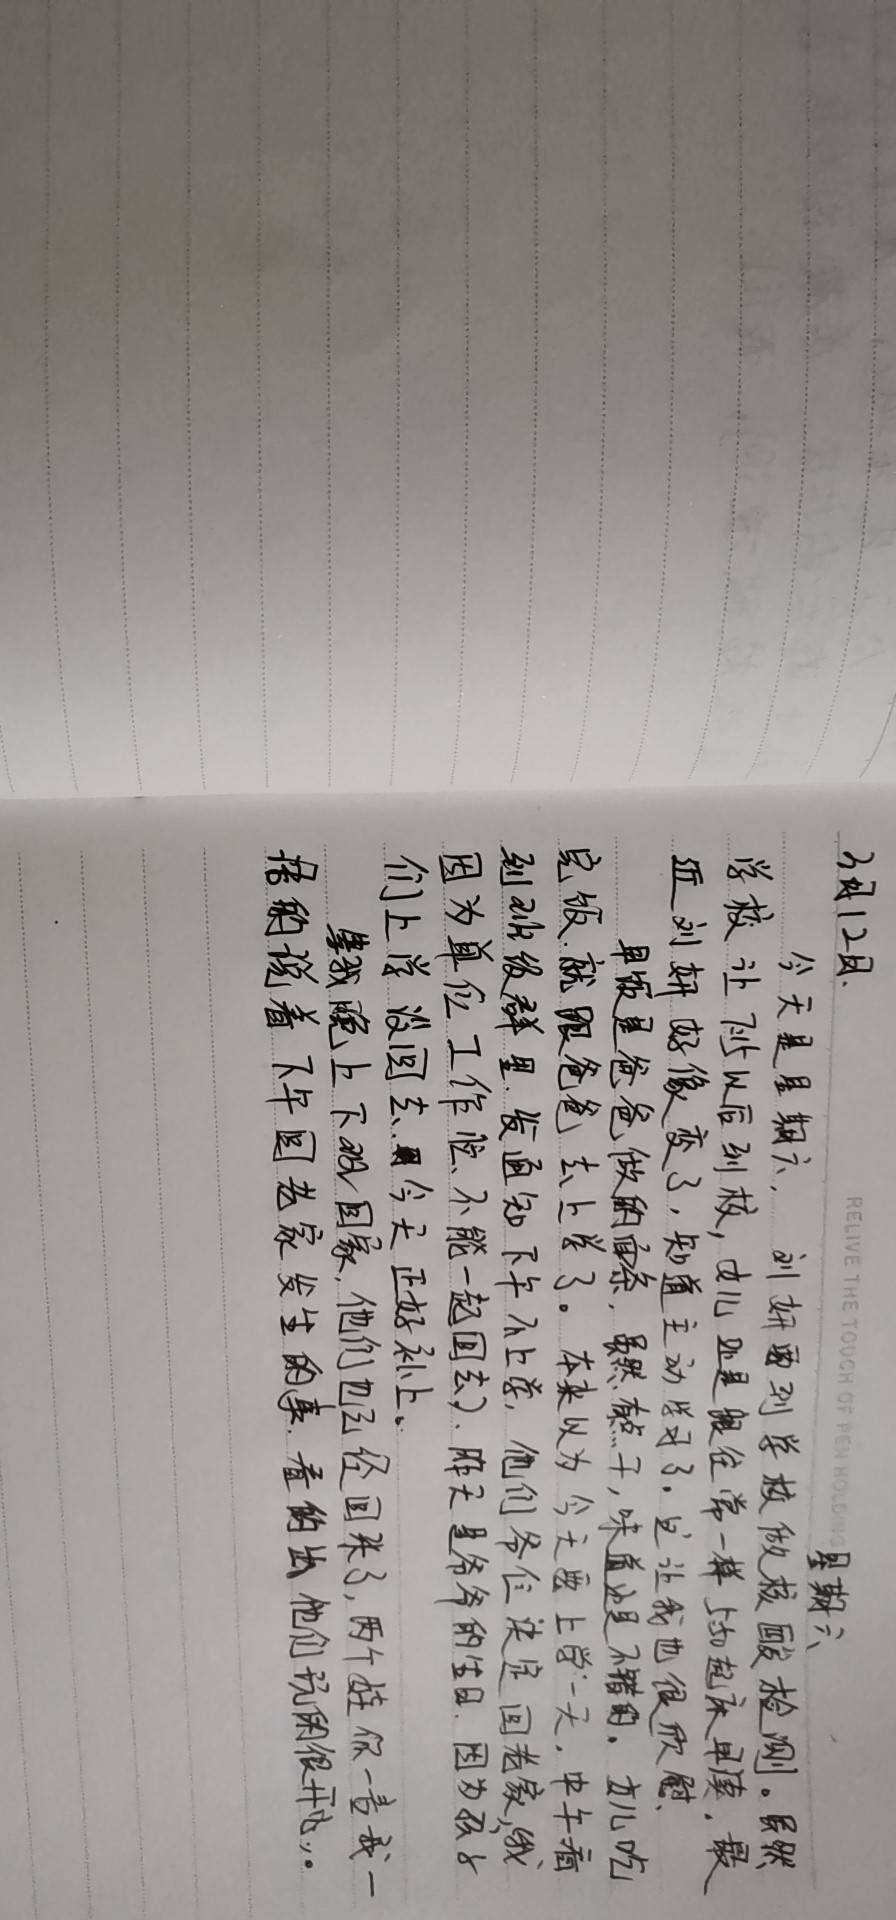 RELIVE THE TOUCH OF PEN HOLDING
3月12日. 星期六
今天是星期六, 刘妍要到学校做核酸检测。虽然
学校让7点以后到校, 女儿还是跟往常一样5点起床早读. 最
近刘妍好像变了, 知道主动学习了. 这让我也很欣慰.
早饭是爸爸做的面条, 虽然有点干, 味道还是不错的. 女儿吃
完饭. 就跟爸爸去上学了。本来以为今天要上学一天. 中午看
到班级群里. 发通知下午不上学, 他们爷仨决定回老家, (我
因为单位工作忙、不能一起回去). 昨天是爷爷的生日. 因为孩子
们上学没回去. 今天正好补上。
等我晚上下班回家, 他们也已经回来了, 两个娃你一言我一
语的说着下午回老家发生的事. 看的出他们玩的很开心。